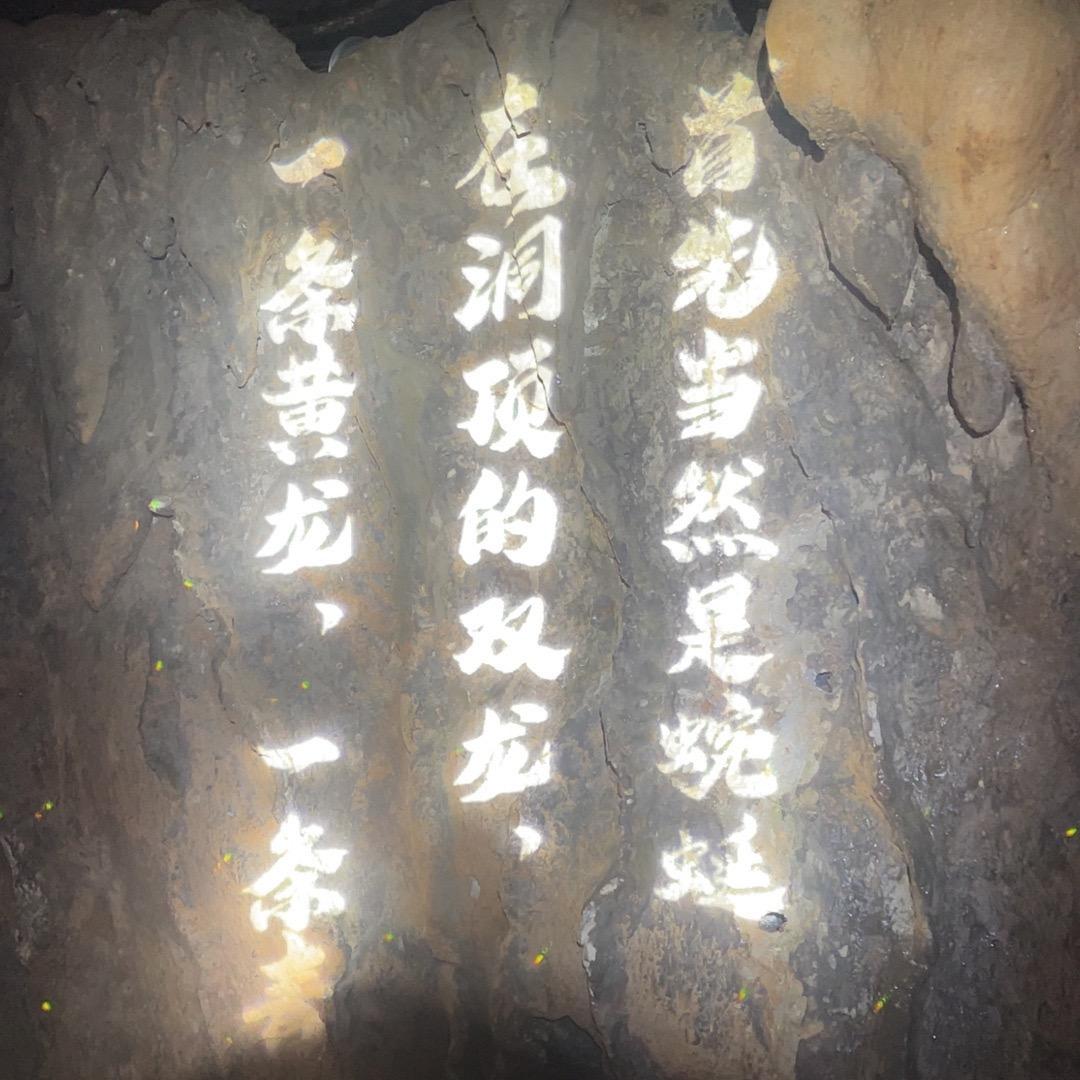 首先当然是蜿蜒
在洞顶的双龙，
一条黄龙，一条